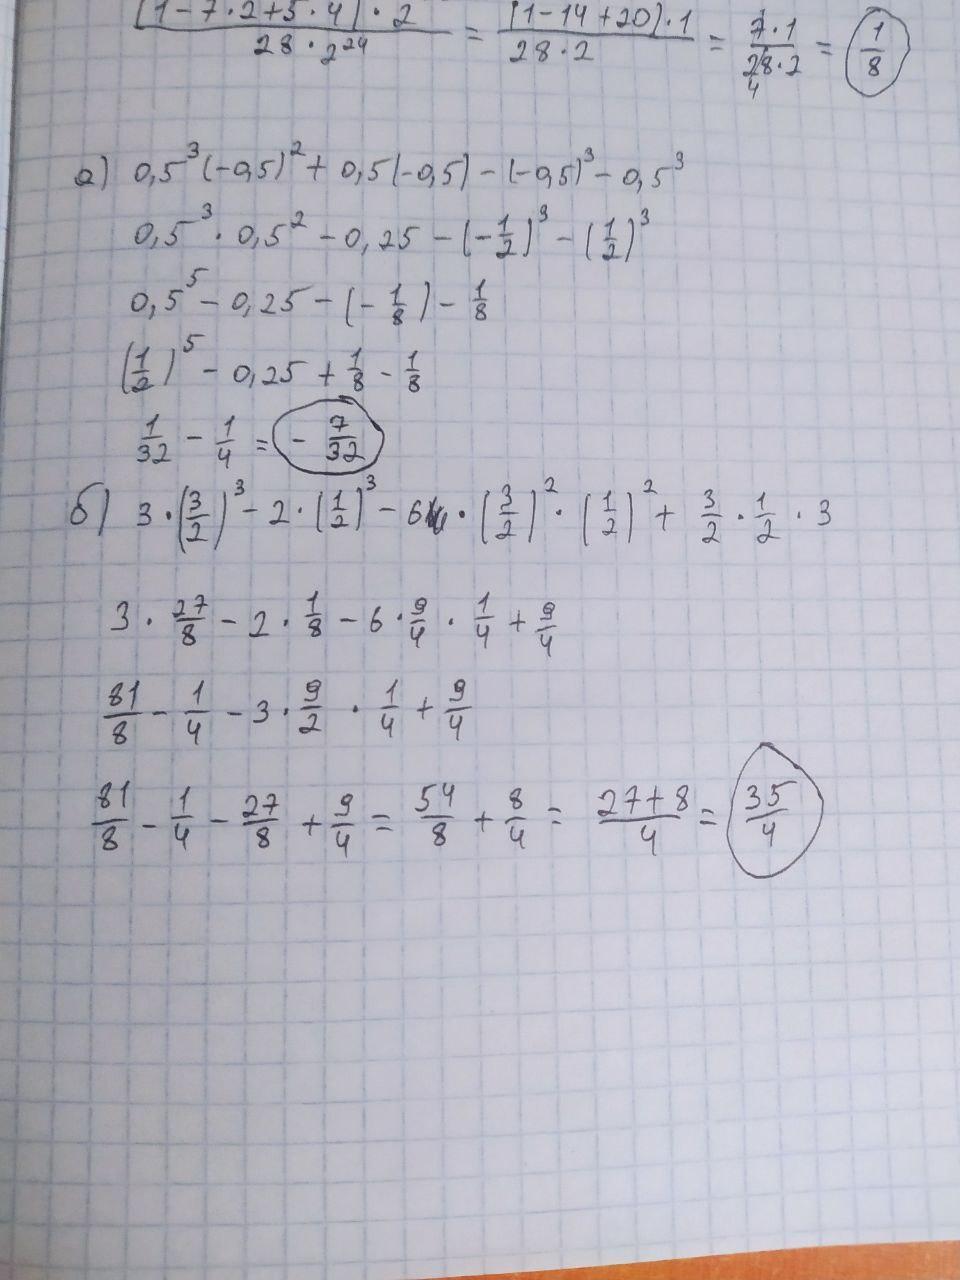 (1-7·2+5·4)·2 / 28·2²⁴ = (1-14+20)·1 / 28·2 = 7·1 / 28·2 4 = 1/8
а) 0,5³(-0,5)² + 0,5(-0,5) - (-0,5)³ - 0,5³
0,5³ · 0,5² - 0,25 - (-1/2)³ - (1/2)³
0,5⁵ - 0,25 - (-1/8) - 1/8
(1/2)⁵ - 0,25 + 1/8 - 1/8
1/32 - 1/4 = -7/32
б) 3·(3/2)³ - 2·(1/2)³ - 6·(3/2)²·(1/2)² + 3/2·1/2·3
3·27/8 - 2·1/8 - 6·9/4·1/4 + 9/4
81/8 - 1/4 - 3·9/2·1/4 + 9/4
81/8 - 1/4 - 27/8 + 9/4 = 54/8 + 8/4 = 27+8/4 = 35/4